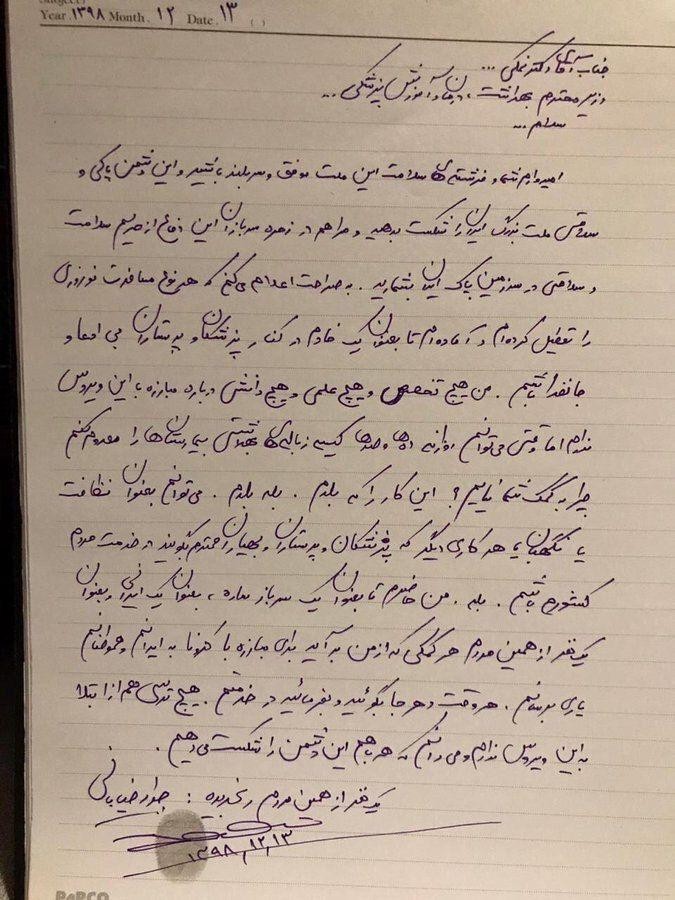 Subject:
Year. ۱۳۹۸ Month. ۱۲ Date. ۱۳ ( )
جناب آقای دکتر نمکی ...
وزیر محترم بهداشت، درمان و آموزش پزشکی ...
سلام ...
امیدوارم شما و فرشته‌های سلامت این ملت موفق و سربلند باشید و این دشمن پاکی و
سلامتی ملت بزرگ ایران را شکست بدهید و مرا هم در زمره سربازان این دفاع از حریم سلامت
و سلامتی در سرزمین پاک ایران بشمارید . به صراحت اعلام می‌کنم که هر نوع مسافرت نوروزی
را تعطیل کرده‌ام و آماده‌ام تا بعنوان یک خادم در کنار پزشکان و پرستاران بی ادعا و
جانفدا باشم . من هیچ تخصص و هیچ علمی و هیچ دانشی درباره مبارزه با این ویروس
ندارم اما وقتی می‌توانم روزانه ده‌ها و صدها کیسه زباله‌های بهداشتی بیمارستان‌ها را معدوم کنم
چرا به کمک شما نیایم ؟ این کار را که بلدم . بله بلدم . می‌توانم بعنوان نظافت
یا نگهبان یا هر کاری دیگر که پزشکان و پرستاران و بهیاران محترم بگویند در خدمت مردم
کشورم باشم . بله . من حاضرم تا بعنوان یک سرباز ساده ، بعنوان یک ایرانی و بعنوان
یک نفر از همین مردم هر کمکی که از من بر آید برای مبارزه با کرونا به ایرانم و هموطنانم
یاری برسانم . هر وقت و هر جا بگوئید و بفرمائید در خدمتم . هیچ ترسی هم از ابتلا
به این ویروس ندارم و می دانم که همه با هم این دشمن را شکست می‌دهیم .
یک نفر از همین مردم رنجدیده : جواد خیابانی
۱۳۹۸,۱۲,۱۳
PAPCO